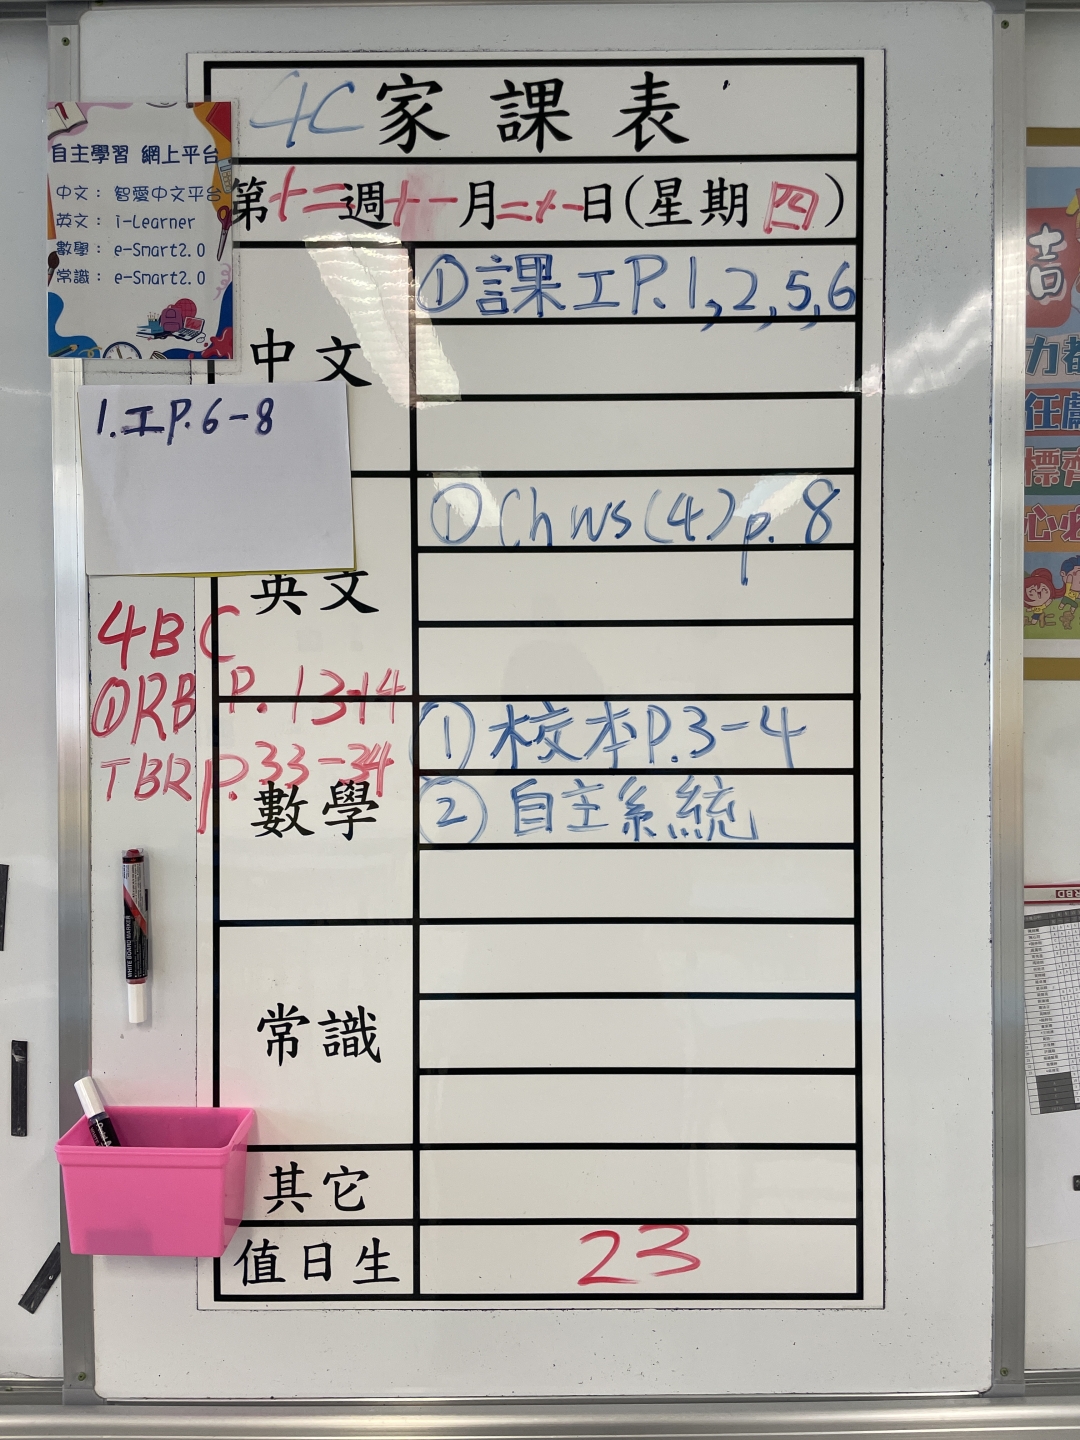 4C家課表
第十二週十一月二十一日(星期四)
自主學習 網上平台
中文：智愛中文平台
英文：i-Learner
數學：e-Smart2.0
常識：e-Smart2.0
中文
①課工P.1,2,5,6
1.工P.6-8
英文
①Ch WS(4)p.8
4BC
①RB P.13-14
TBR p.33-34
數學
①校本P.3-4
②自主系統
常識
其它
值日生
23
WHITE BOARD MARKER
吉
力都
任處
標齊
心必
RBD